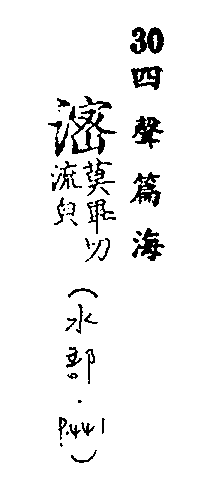 30 四聲篇海
滵
莫切
流皃
(水部·P.441)